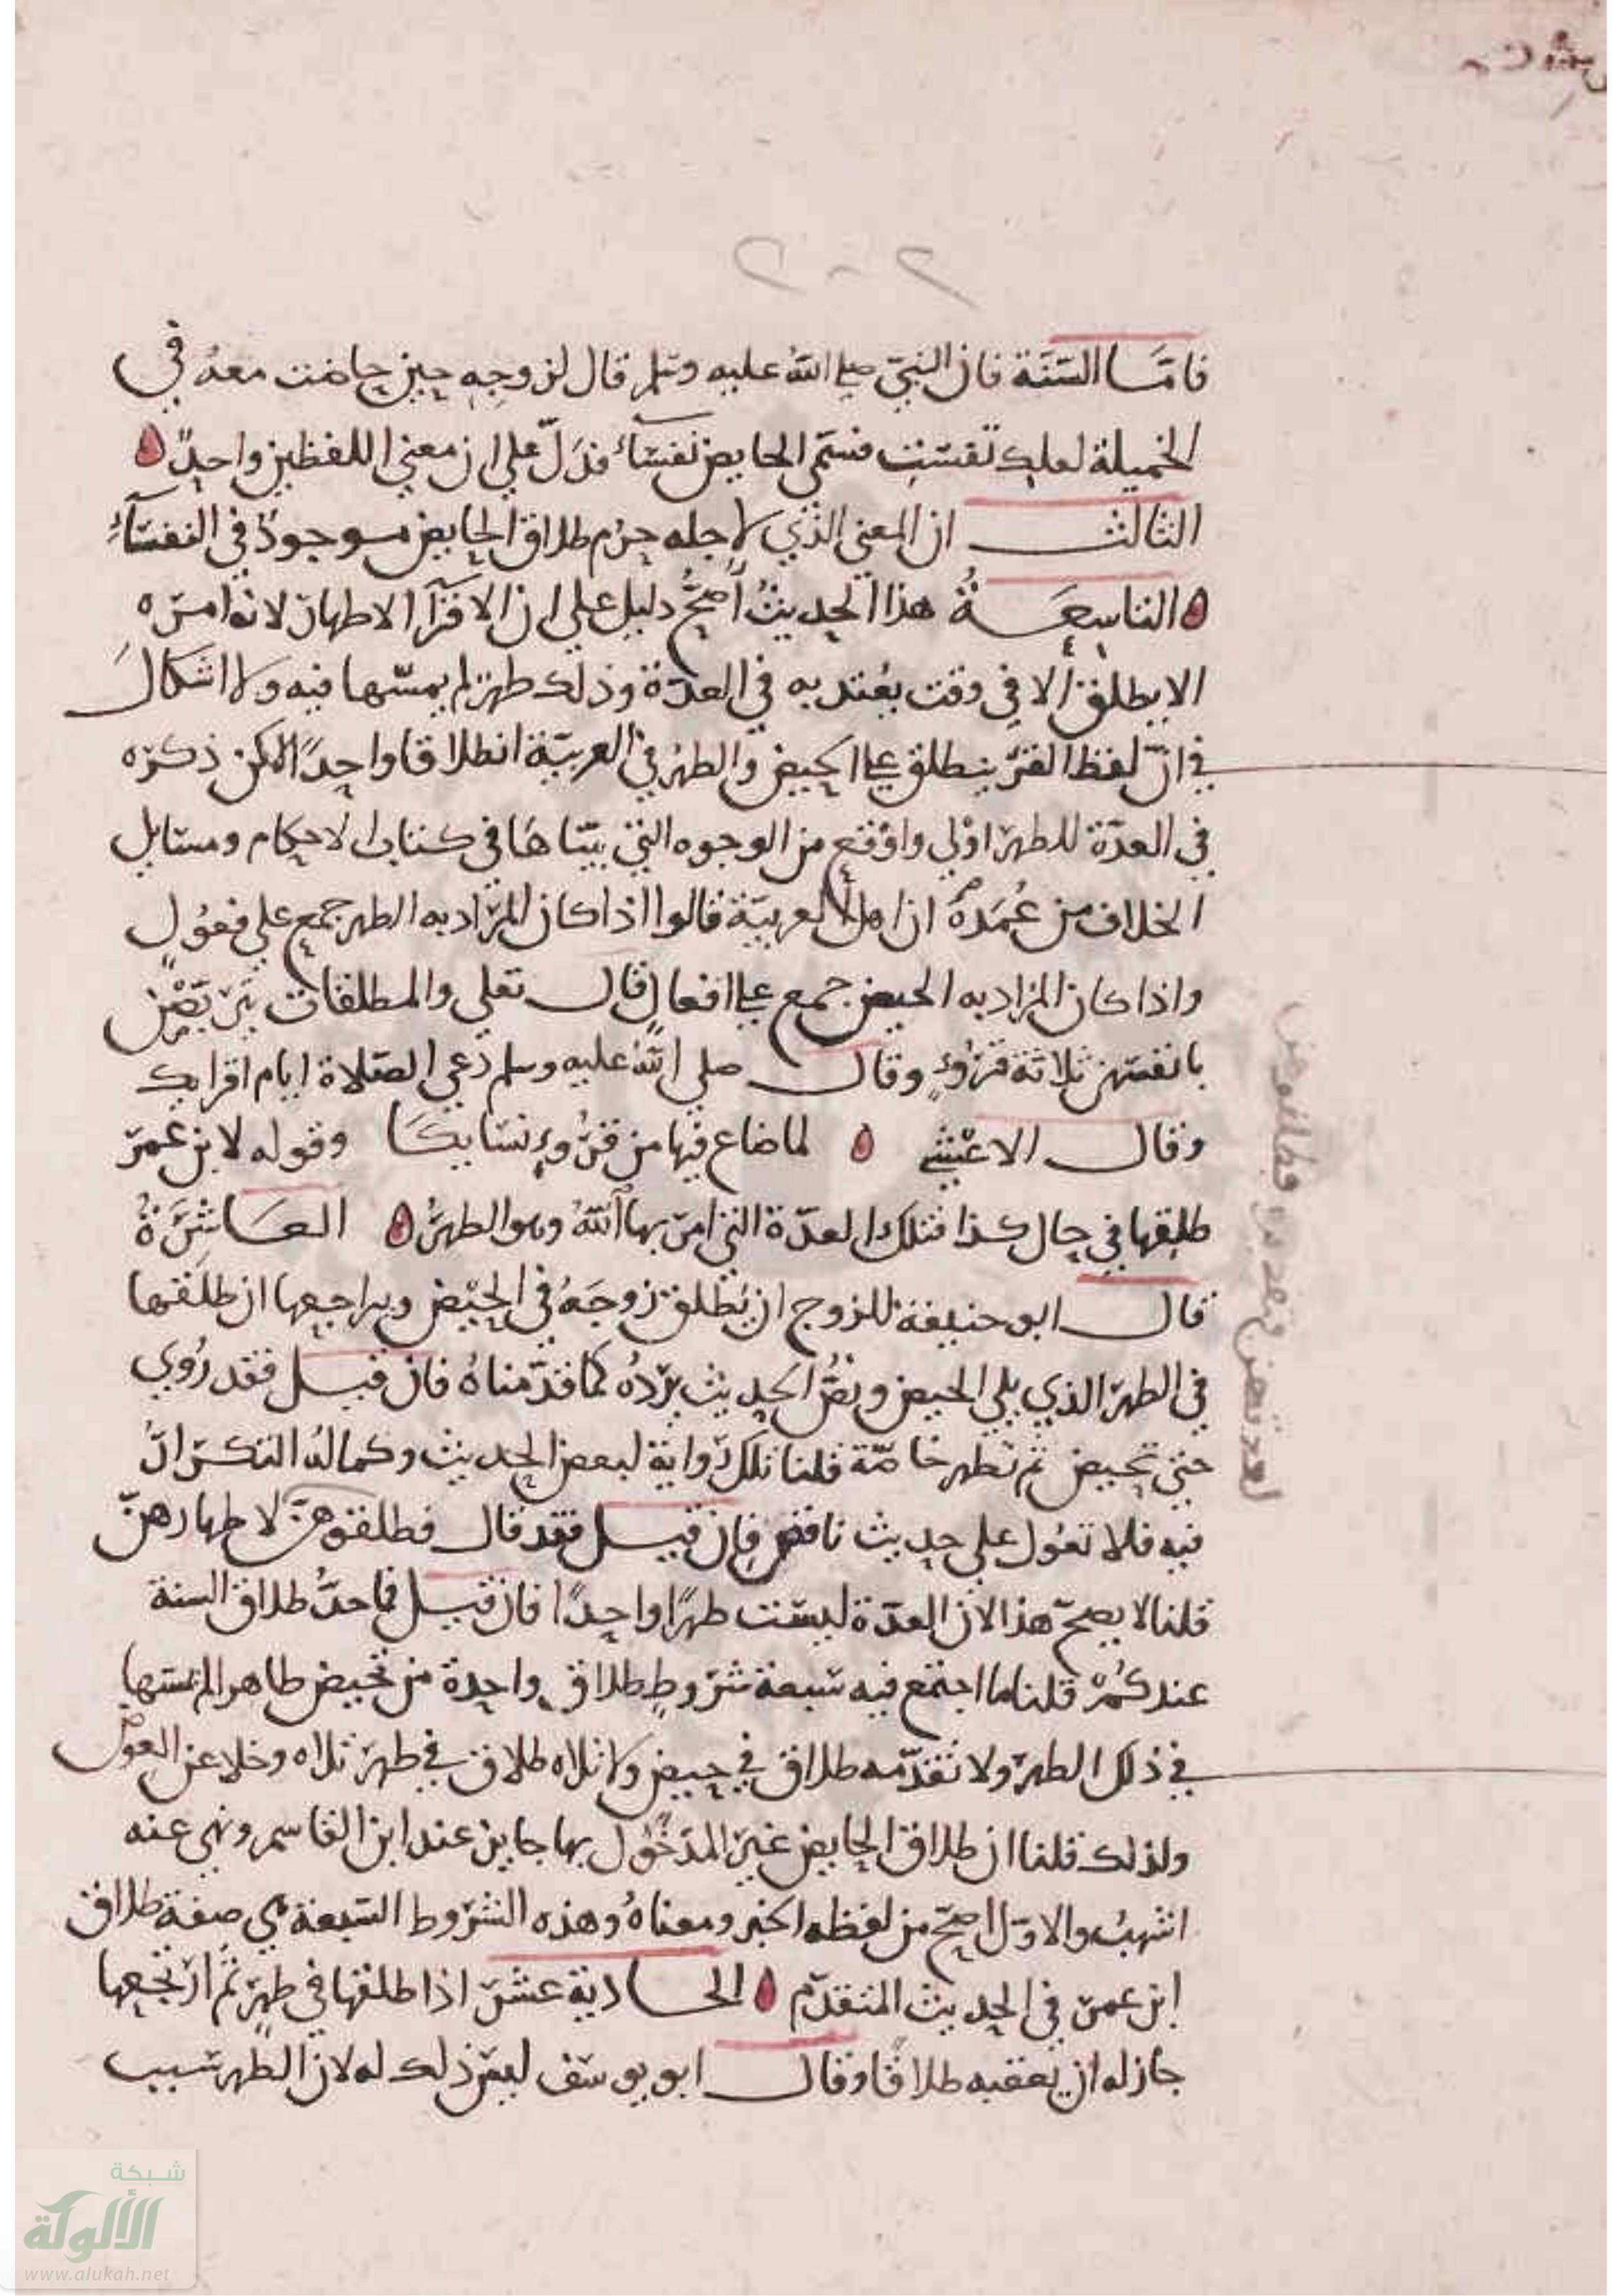 فامّا السّنة فان النبيّ صلى الله عليه وسلم قال لزوجه حين حاضت معه في
الخميلة لعلك نفست فسمّى الحايض نفسآء فدلّ على ان معنى اللفظين واحد
الثالث ان المعنى الذي لاجله حرم طلاق الحايض موجود في النفسآء
التاسعة هذا الحديث أصحّ دليل على ان الاقرآ الاطهار لانه امره
الا يطلق الا في وقت يعتد به في العدّة وذلك طهر لم يمسّها فيه ولا اشكال
في انّ لفظ القرء ينطلق على الحيض والطهر في العربيّة انطلاقا واحدًا لكن ذكره
في العدّة للطهر اولى واوقع من الوجوه التي بيّنّاها في كتاب الاحكام ومسايل
الخلاف من عُمَده ان اهل العربيّة قالوا اذا كان المراد به الطهر جمع على فعول
واذا كان المراد به الحيض جمع على افعال قال تعلى والمطلقات يتربّصن
بانفسهن ثلاثة قروءٍ وقال صلى الله عليه وسلم دعي الصّلاة ايام اقرايك
وقال الاعشى لما ضاع فيها من قروء نسايكا وقوله لابن عمر
طلقها في حال كذا فتلك العدّة التي امر بها الله وهو الطهر العاشِرَةُ
قال ابو حنيفة للزوج ان يطلق زوجَهُ في الحيض ويراجعها ان طلقها
في الطهر الذي يلي الحيض ونصّ الحديث يردّهُ كما قدّمناهُ فان قيل فقد رُوي
حتى تحيض ثم تطهر خاصّة قلنا تلك رواية لبعض الحديث وكماله التكرار
فيه فلا تعوّل على حديث ناقص فان قيل فقد قال فطلقوهنّ لاطهارهنّ
قلنا لا يصحّ هذا لان العدّة ليست طهرًا واحدًا فان قيل فما حدّ طلاق السنة
عندكُمْ قلنا ما اجتمع فيه سبعة شروط طلاق واحدة من تحيض طاهرا لم يمسّها
في ذلك الطهر ولا تقدّمه طلاق في حيض ولا تلاه طلاق في طهر تلاه وخلا عن العوض
ولذلك قلنا ان طلاق الحايض غير المدخُول بها جايز عند ابن القاسم ونهى عنه
اشهب والاوّل اصحّ من لفظه الخبر ومعناهُ وهذه الشروط السّبعة هي صفة طلاق
ابن عمر في الحديث المتقدّم الحادية عشر اذا طلقها في طهرٍ ثم ارتجعها
جاز له ان يعقبه طلاقًا وقال ابو يوسف ليس ذلك له لان الطهر سبب
شبكة
الألوكة
www.alukah.net